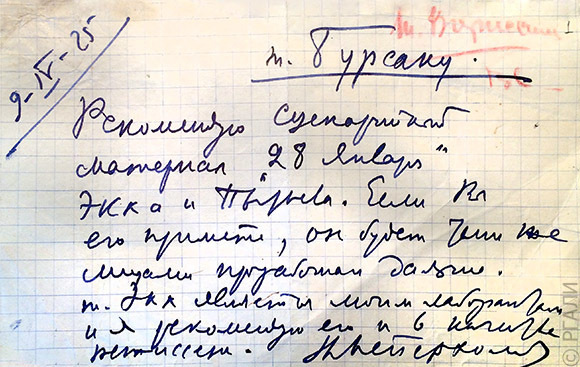 9-IV-25
т. Гурсаку.
1
Рекомендую сценарийный
материал „28 января"
Экка и Пырьева. Если Вы
его примете, он будет теми же
лицами проработан дальше.
т. Экк является моим лаборантом
и я рекомендую его и в качестве
режиссера. Вс. Мейерхольд
© РГАЛИ